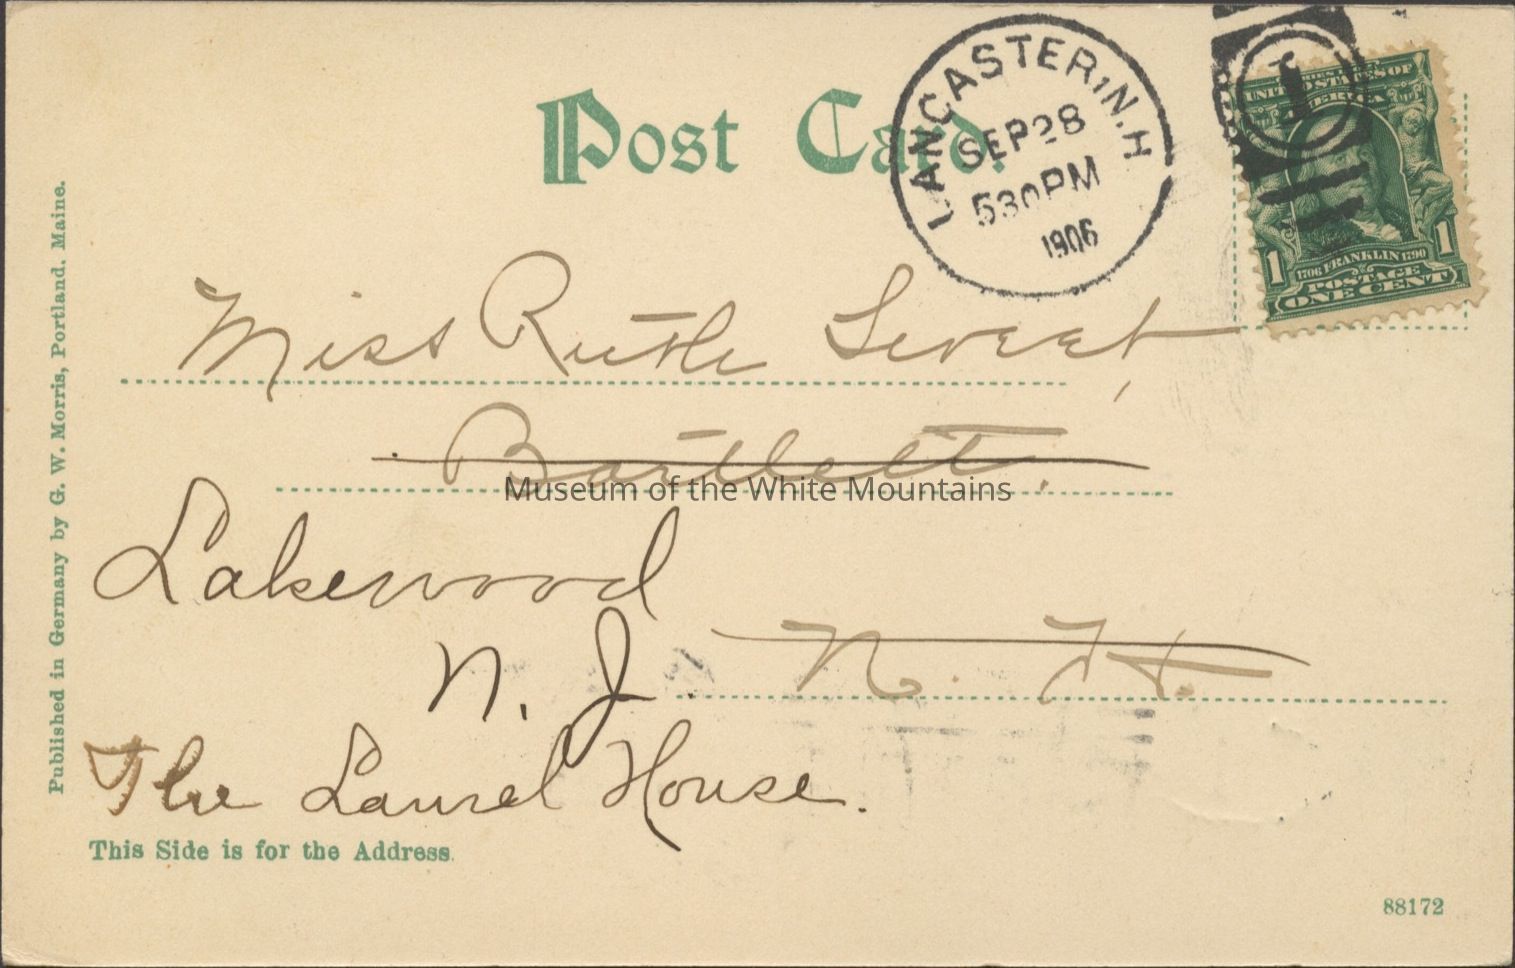 Post Card.
LANCASTER, N.H.
SEP 28
530 PM
1906
UNITED STATES OF
AMERICA
1
1 1
1706 FRANKLIN 1790
POSTAGE
ONE CENT
Published in Germany by G. W. Morris, Portland. Maine.
Miss Ruth Sweet,
Bartlett.
Museum of the White Mountains
Lakewood
N. J.
N. H.
The Laurel House.
This Side is for the Address.
88172